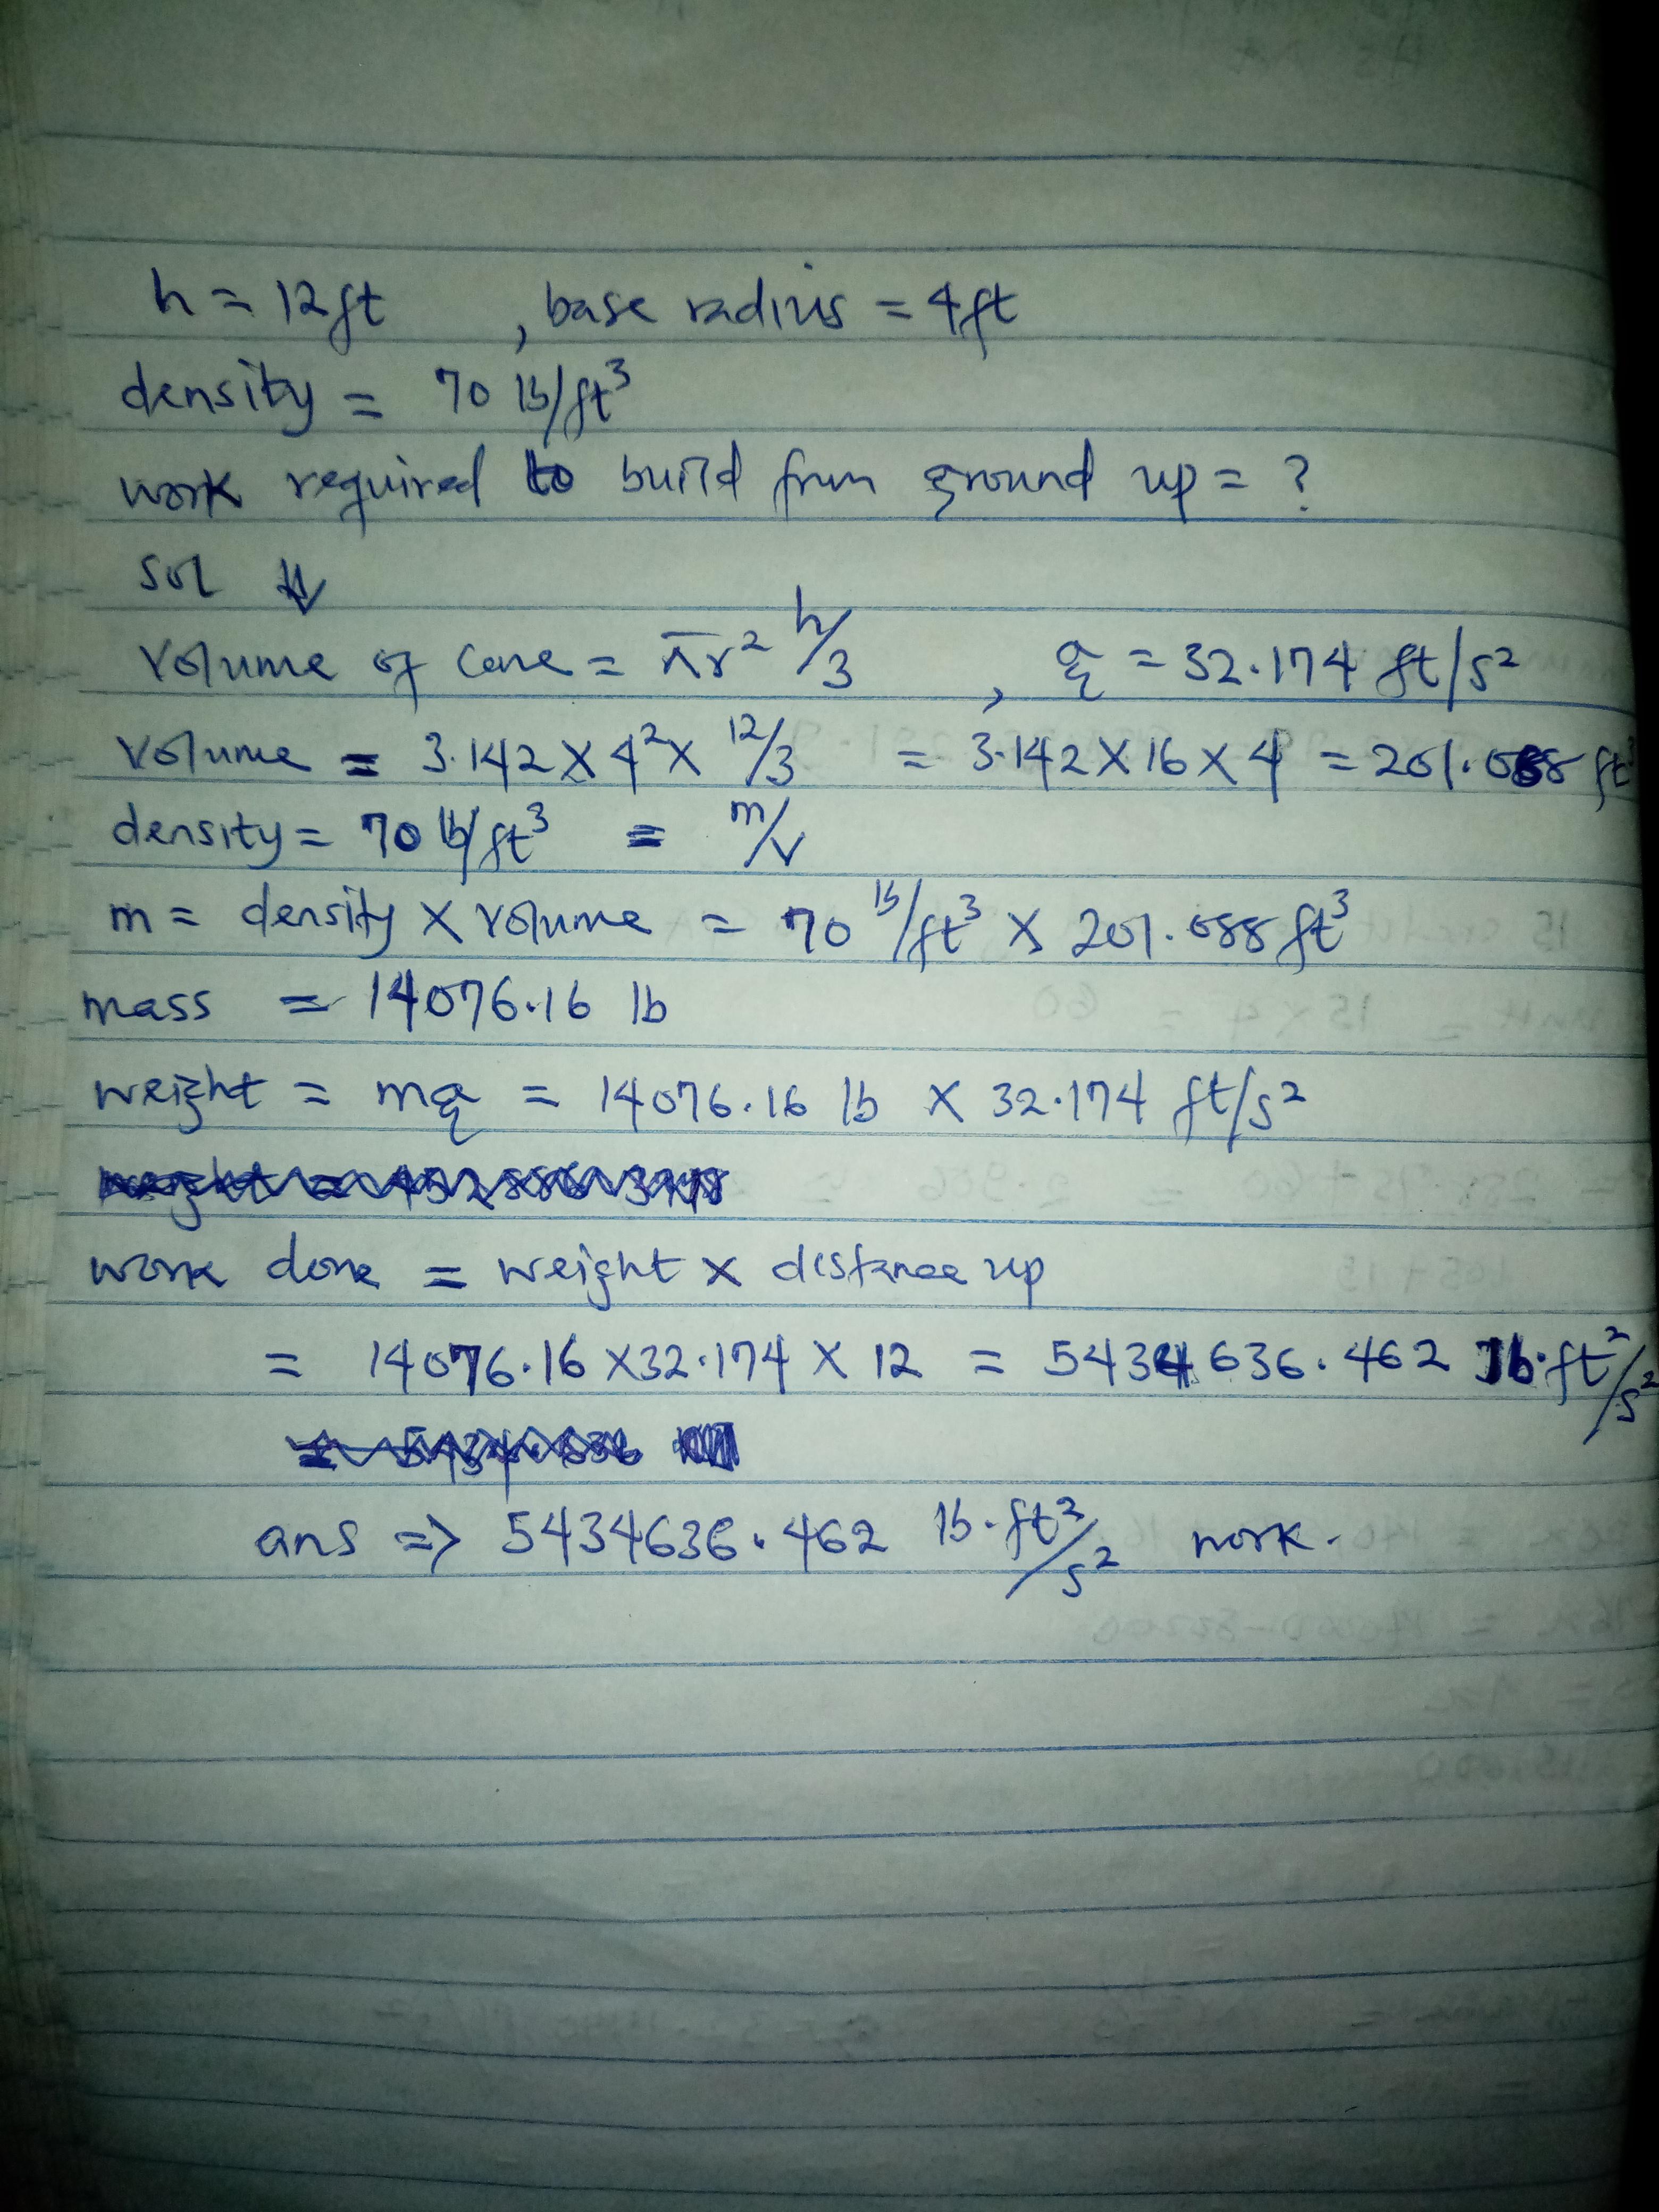 h = 12ft , base radius = 4ft
density = 70 lb/ft³
work required to build from ground up = ?
sol ⇓
Volume of Cone = πr² h/3 , g = 32.174 ft/s²
Volume = 3.142 × 4² × 12/3 = 3.142 × 16 × 4 = 201.088 ft³
density = 70 lb/ft³ = m/v
m = density × volume = 70 lb/ft³ × 201.088 ft³
mass = 14076.16 lb
weight = mg = 14076.16 lb × 32.174 ft/s²
work done = weight × distance up
= 14076.16 × 32.174 × 12 = 5434636.462 lb·ft²/s²
ans => 5434636.462 lb·ft²/s² work.